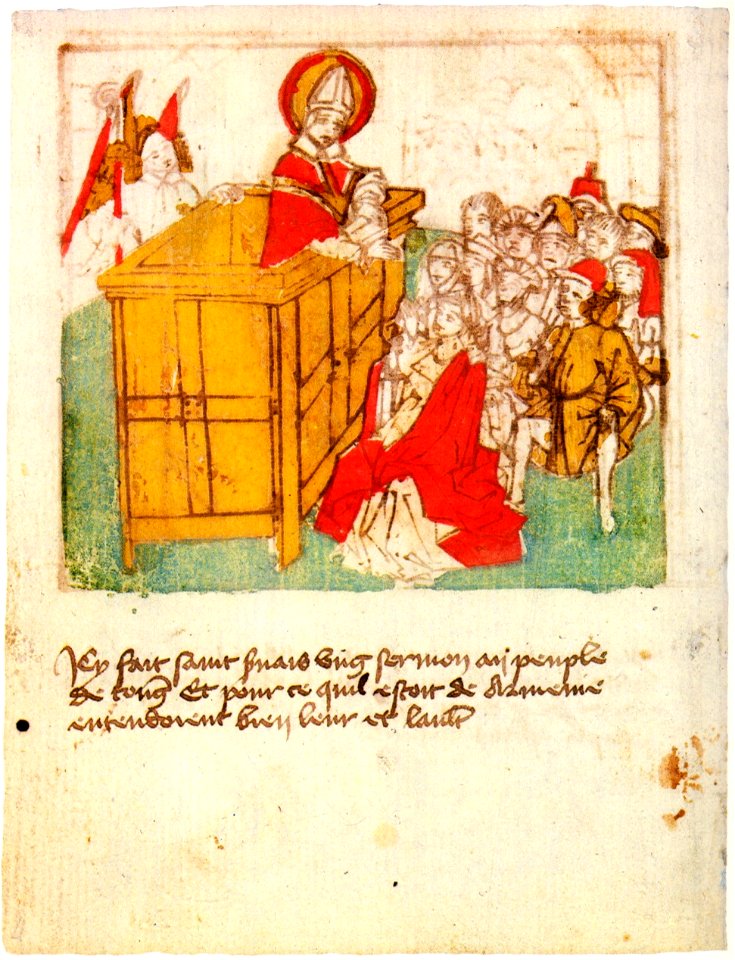 Icy fait saint seruais vng sermon au peuple
de tong̃ Et pour ce quil estoit de Armenie
entendoient bien leur et lault̃